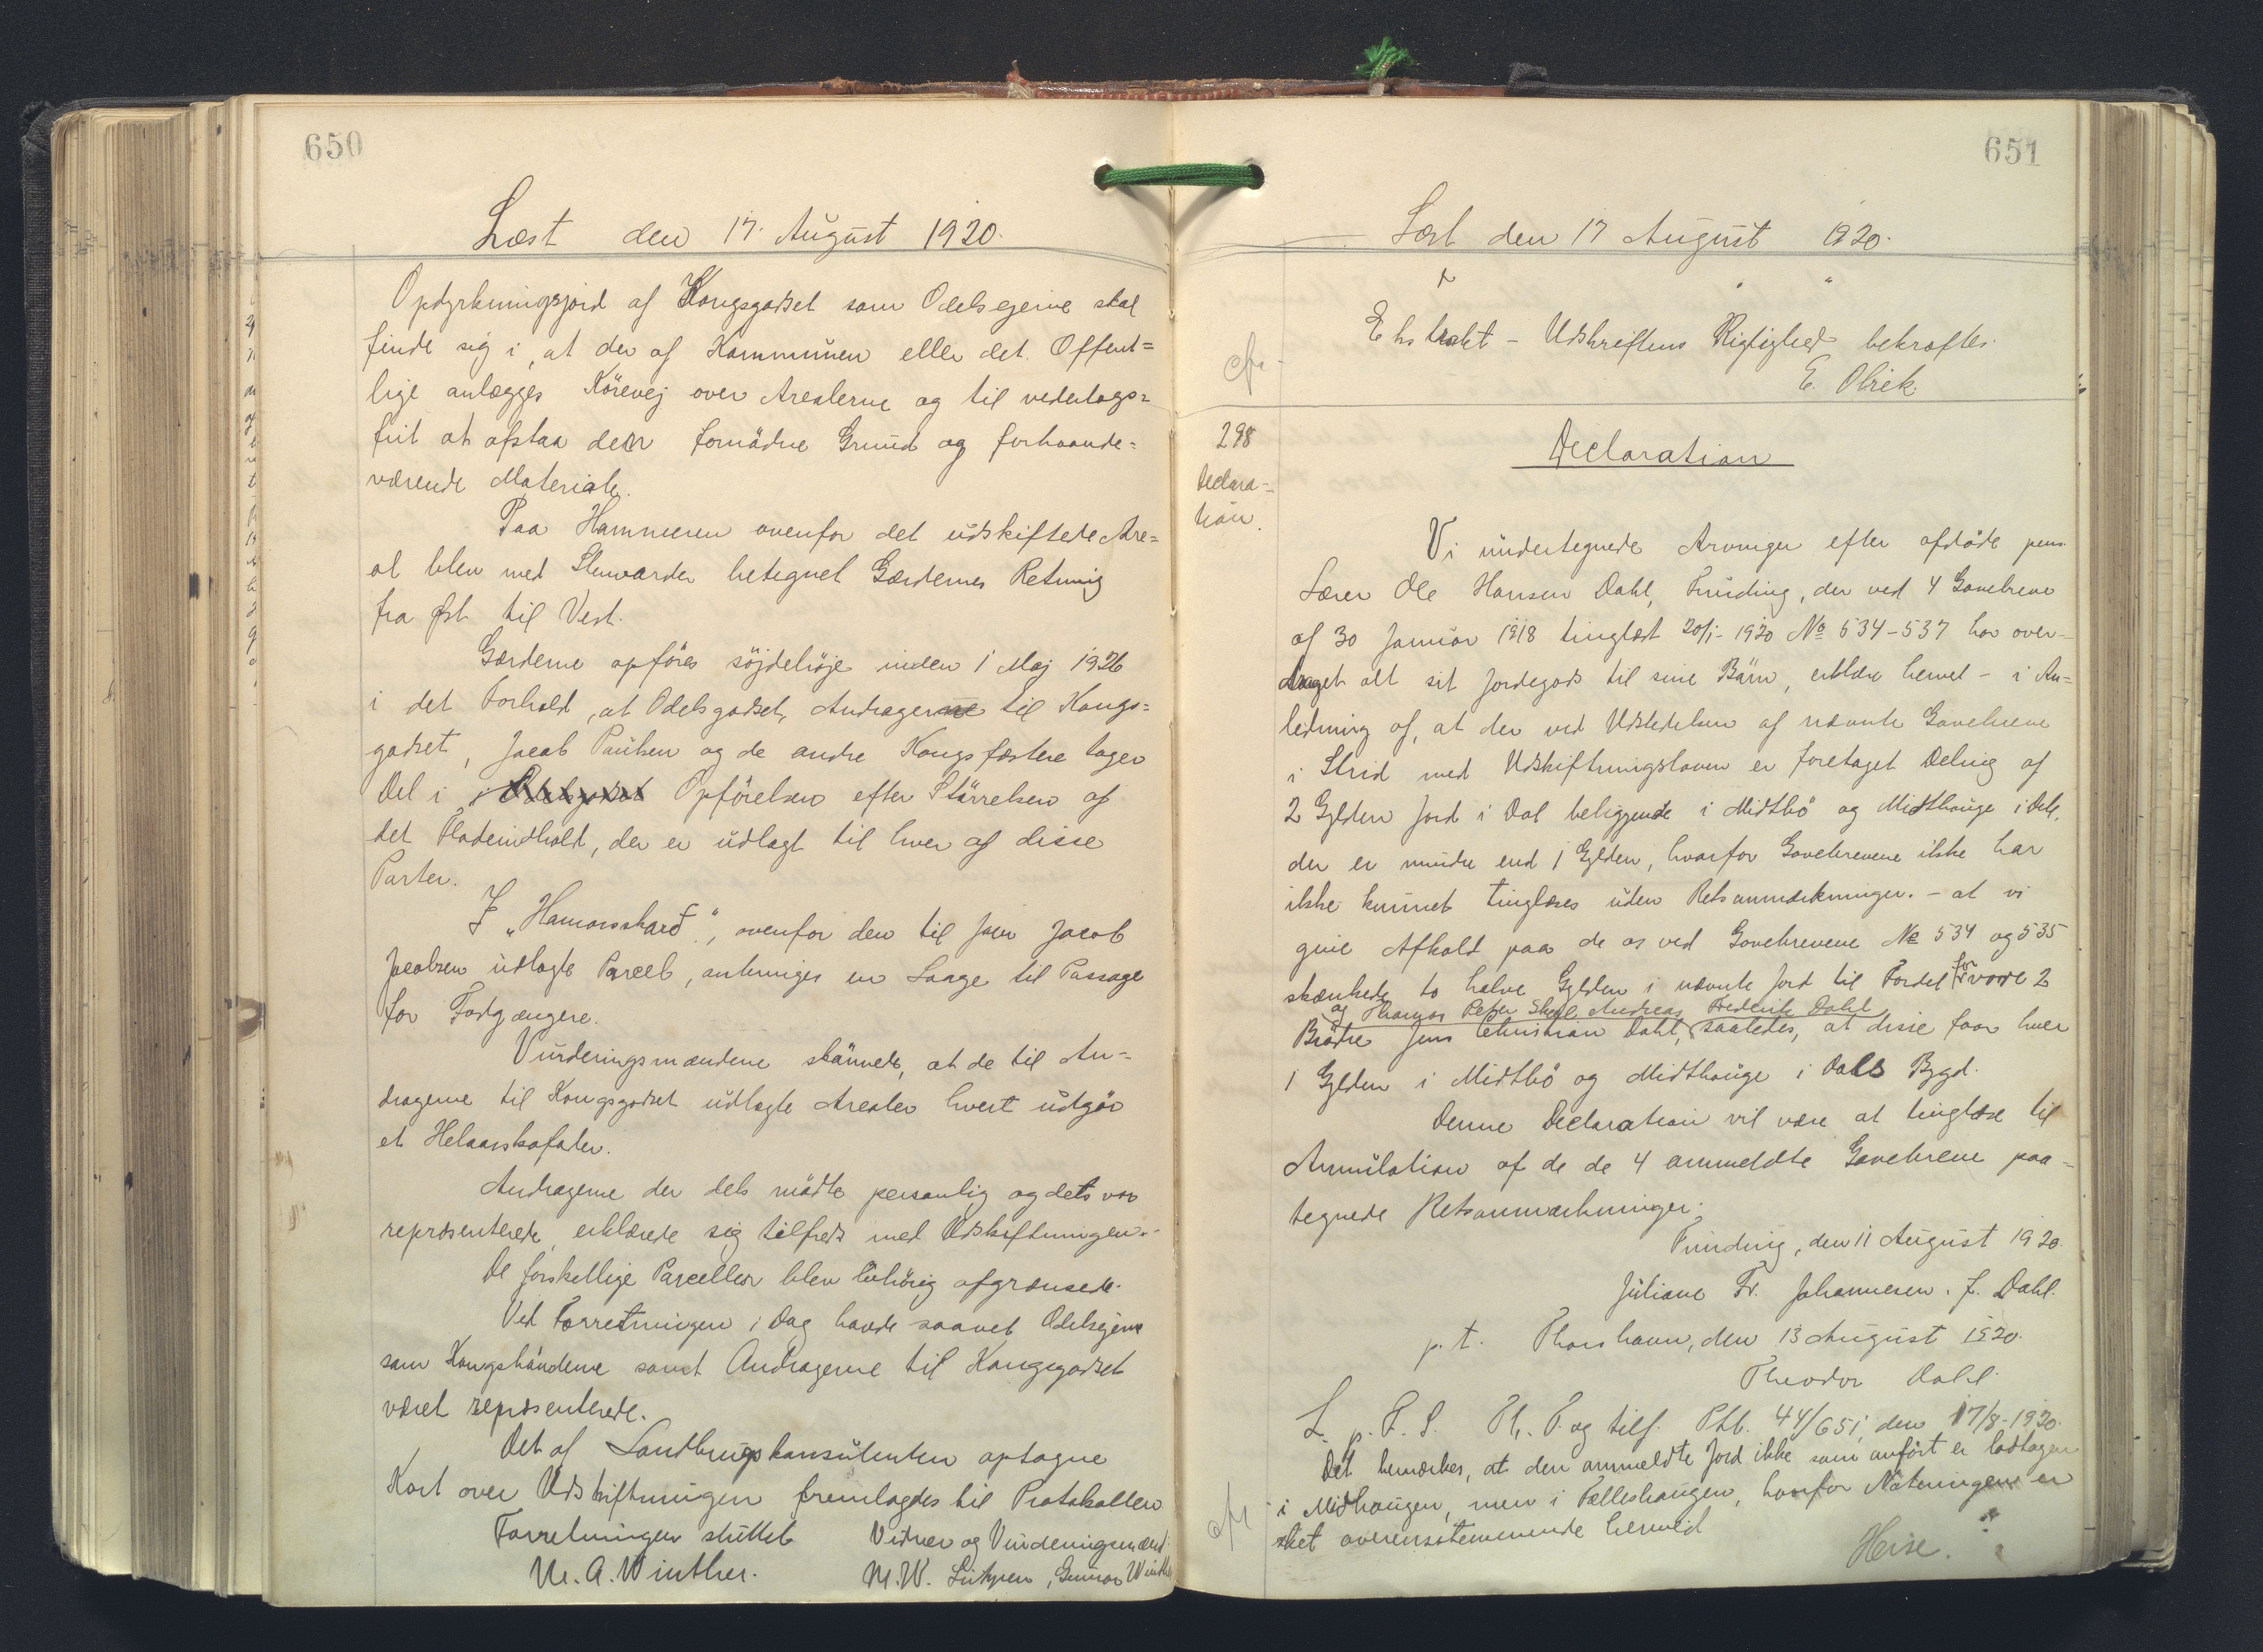 650
Læst den 17. August 1920.
Opdyrkningsjord af Kongsgodset som Odelsejerne skal
finde sig i, at der af Kommunen eller det Offent=
lige anlægges Körevej over Arealerne og til vederlags=
frit at afstaa den fornödne Grund og forhaande=
værende Materiale.
Paa Hammeren ovenfor det udskiftede Are=
al blev med Stenvarder betegnet Gærdernes Retning
fra Øst til Vest.
Gærderne opföres söjdehöje inden 1 Maj 1926
i det Forhold, at Odelsgodset, Andragerne til Kongs=
godset, Jacob Paulsen og de andre Kongsfæstere tager
Del i Opförelsen efter Störrelsen af
det Fladeindhold, der er udlagt til hver af disse
Parter.
I "Hamarsskard", ovenfor den til Jacob
Jacobsen udlagte Parcel, anbringes en Laage til Passage
for Fodgængere.
Vurderingsmændene skönnede, at de til An=
dragerne til Kongsgodset udlagte Arealer hvert udgör
et Helaarskofoder.
Andragerne der dels mödte personlig og dels var
repræsenterede erklærede sig tilfreds med Udskiftningen.-
De forskellige Parceller blev behörig afgrænsede.
Ved Forretningen i Dag havde saavel Odelsejerne
som Kongsbönderne samt Andragerne til Kongsgodset
været repræsenterede.
Det af Landbrugskonsulenten optagne
Kort over Udskiftningen fremlagdes til Protokollen
Forretningen sluttet Vidner og Vurderingsmænd.
M. A. Winther. M. W. Lützen, Gunnar Winther
651
Læst den 17 August 1920.
Ekstrakt - Udskriftens Rigtighed bekræftes.
cfr
E. Olrik.
298
Declara=
tion.
Declaration
Vi undertegnede Arvinger efter afdöde pens.
Lærer Ole Hansen Dahl, Funding, der ved 4 Gavebreve
af 30 Januar 1918 tinglæst 20/1- 1920 No 534-537 har over-
draget alt sit Jordegods til sine Börn, erklære herved - i An=
ledning af, at der ved Udstedelsen af nævnte Gavebreve
i Strid med Udskiftningsloven er foretaget Deling af
2 Gylden Jord i Dal beliggende i Midtbö og Midthauge i Dele,
der er mindre end 1 Gylden, hvorfor Gavebrevene ikke har
ikke kunnet tinglæses uden Retsanmærkninger. - at vi
give Afkald paa de os ved Gavebrevene No 534 og 535
skænkede to halve Gylden i nævnte Jord til Fordel for vore 2
og Thomas Peter Andreas Frederik Dahl
Brödre Jens Christian Dahl, saaledes, at disse faar hver
1 Gylden i Midtbö og Midthauge i Dals Bygd.
Denne Declaration vil være at tinglæse til
Annulation af de de 4 ommeldte Gavebreve paa=
tegnede Retsanmærkninger.
Funding, den 11 August 1920.
Juliane Fr. Johannesen. f. Dahl.
p. t. Thorshavn, den 13 August 1920.
Theodor Dahl.
L. p. F. S. Th. T. og tilf. Ptb. 44/651, den 17/8-1920.
Det bemærkes, at den ommeldte Jord ikke som anfört er lodtagen
i Midhaugen, men i Fælleshaugen, hvorfor Noteringen er
sket overensstemmende hermed
cfr
Heise.